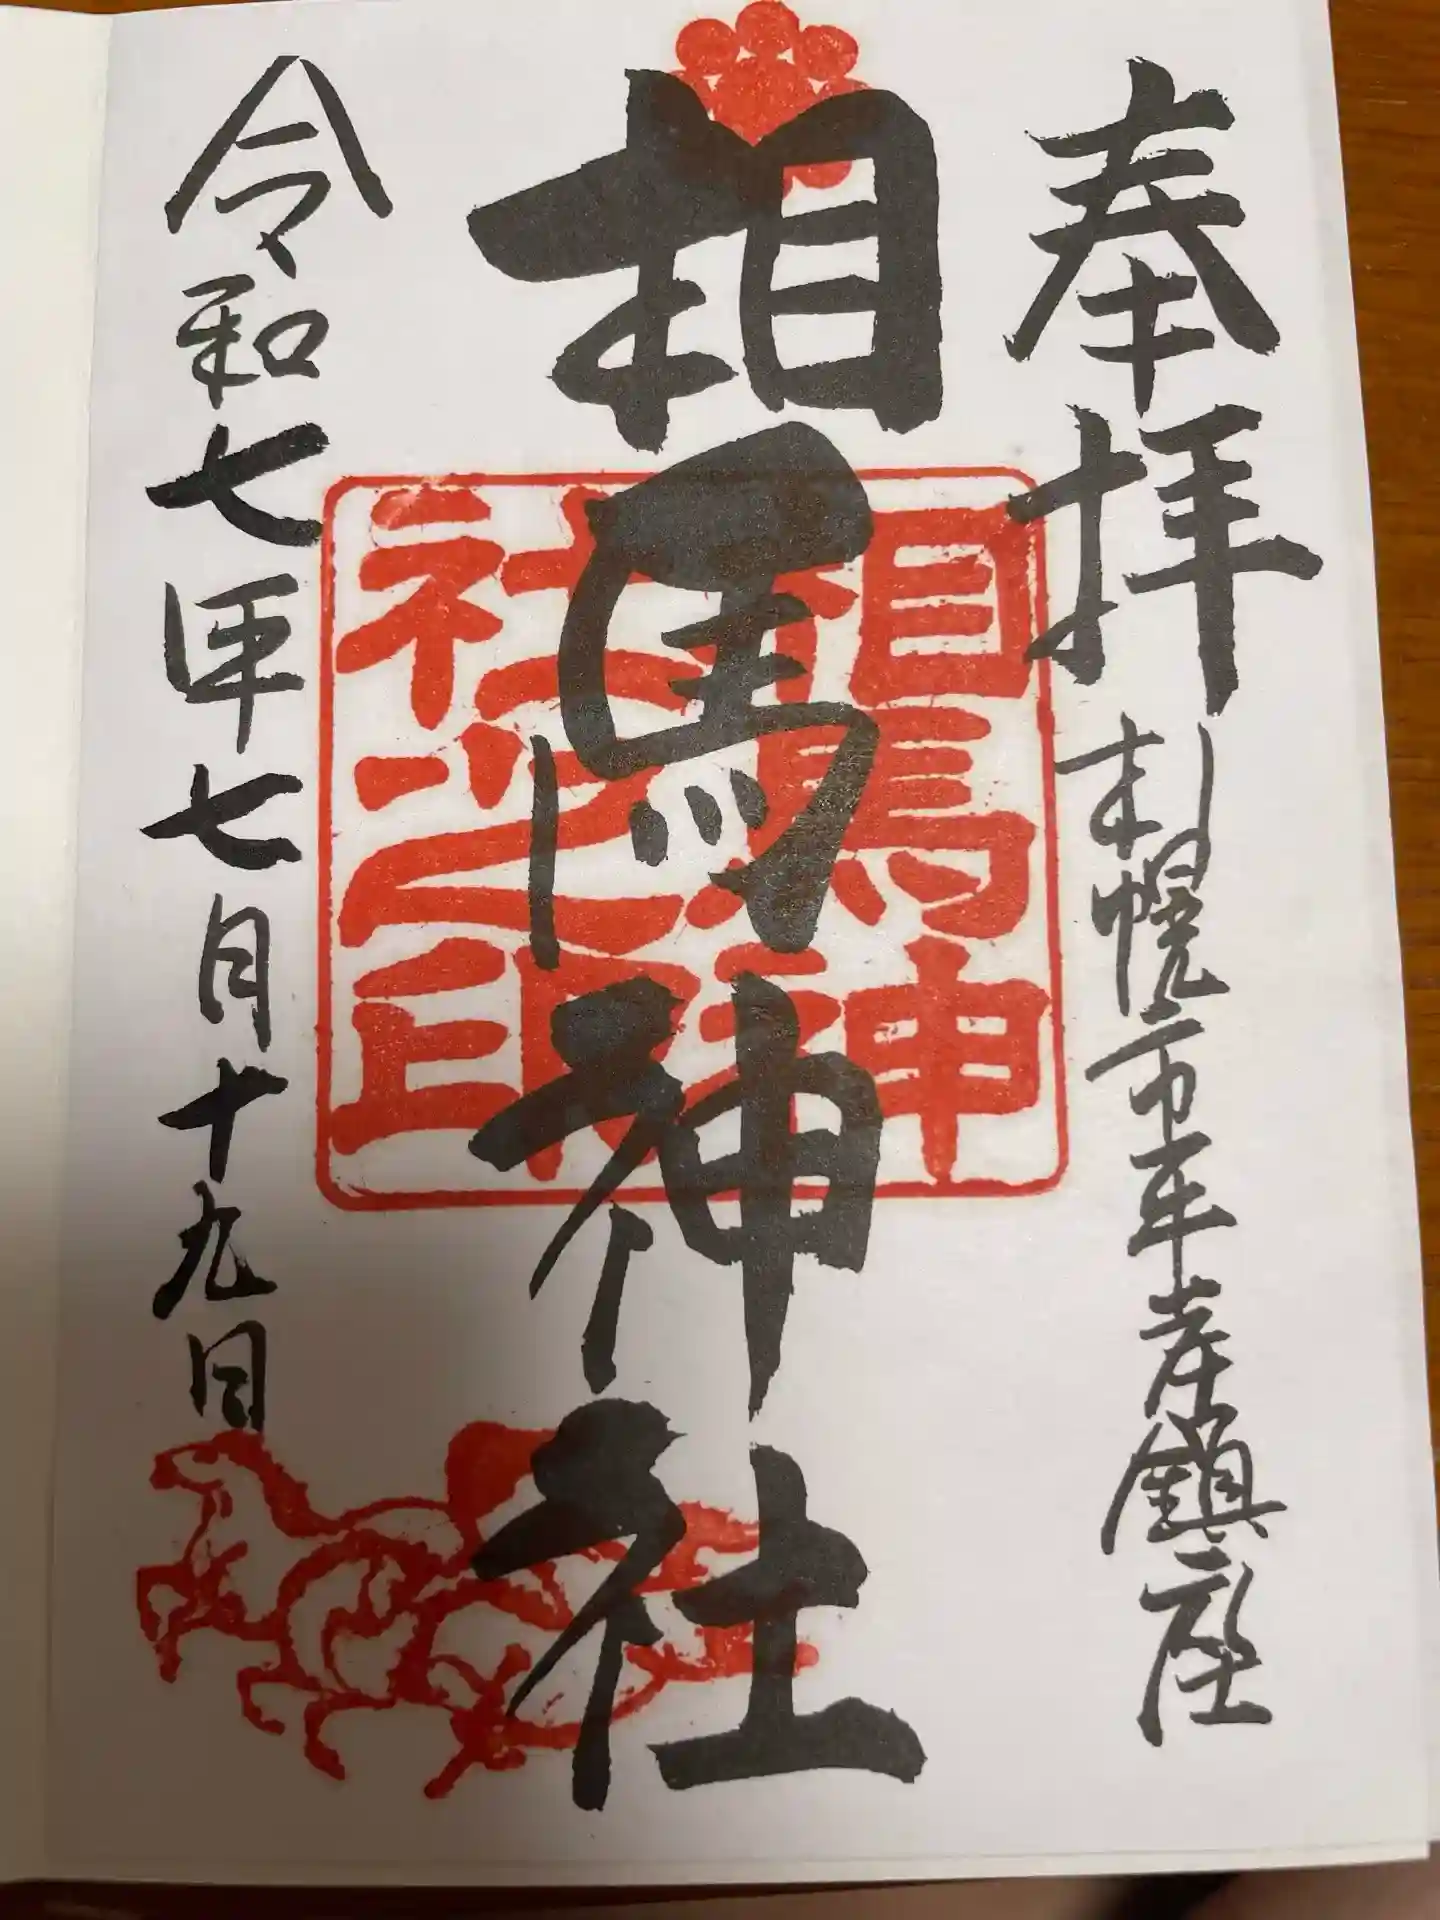 奉拝
札幌市平岸鎮座
相馬神社
相馬神
社之印
令和七年七月十九日